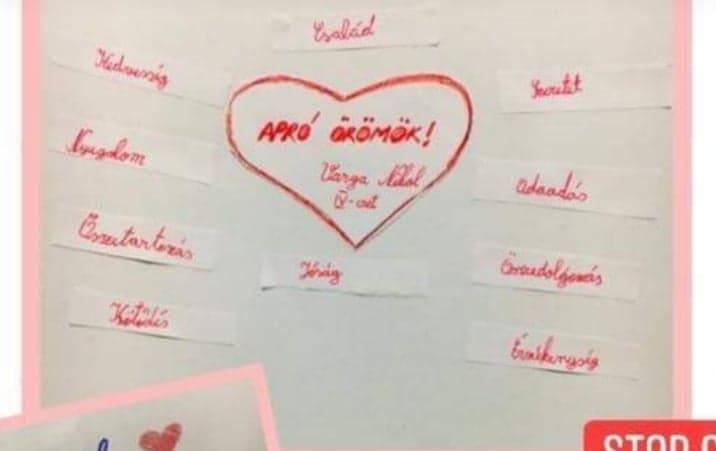 Család
Kedvesség
Szeretet
APRÓ ÖRÖMÖK!
Varga Nikol
Nyugalom
Odaadás
Összetartozás
Jóság
Összedolgozás
Kötődés
Érzékenység
STOP